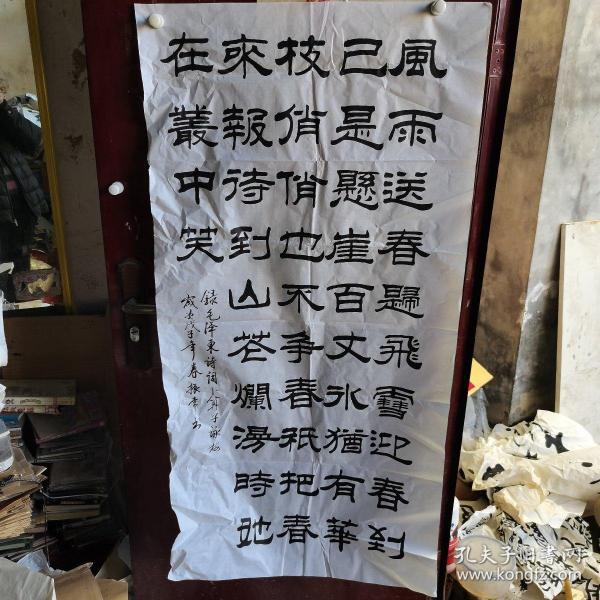 風雨送春歸飛雪迎春到
已是懸崖百丈冰猶有華
枝俏俏也不争春祇把春
來報待到山花爛漫時她
在叢中笑
錄毛泽東诗词卜算子詠梅
歲次戊子年春
孔夫子旧書网
www.kongfz.com